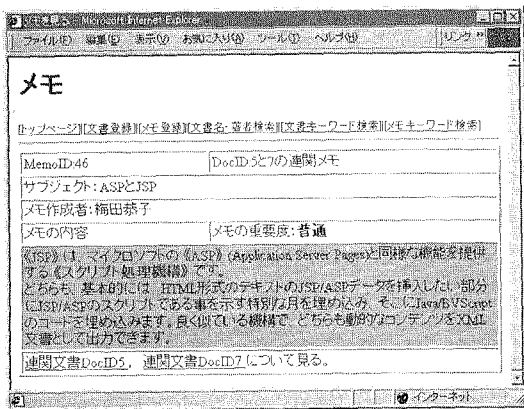 メモを見る - Microsoft Internet Explorer
ファイル(F) 編集(E) 表示(V) お気に入り(A) ツール(T) ヘルプ(H) リンク »
メモ
[トップページ][文書登録][メモ登録][文書名・著者検索][文書キーワード検索][メモキーワード検索]
MemoID:46 DocID 5と7の連関メモ
サブジェクト: ASPとJSP
メモ作成者: 梅田恭子
メモの内容 メモの重要度: 普通
《JSP》は、マイクロソフトの《ASP》(Application Server Pages)と同様な機能を提供
する《スクリプト処理機構》です。
どちらも、基本的には、HTML形式のテキストのJSP/ASPデータを挿入したい部分
にJSP/ASPのスクリプトである事を示す特別な月を埋め込み、そこにJava/BVScript
のコードを埋め込みます。良く似ている機構で、どちらも動的なコンテンツをXML
文書として出力できます。
連関文書DocID5, 連関文書DocID7 について見る。
インターネット